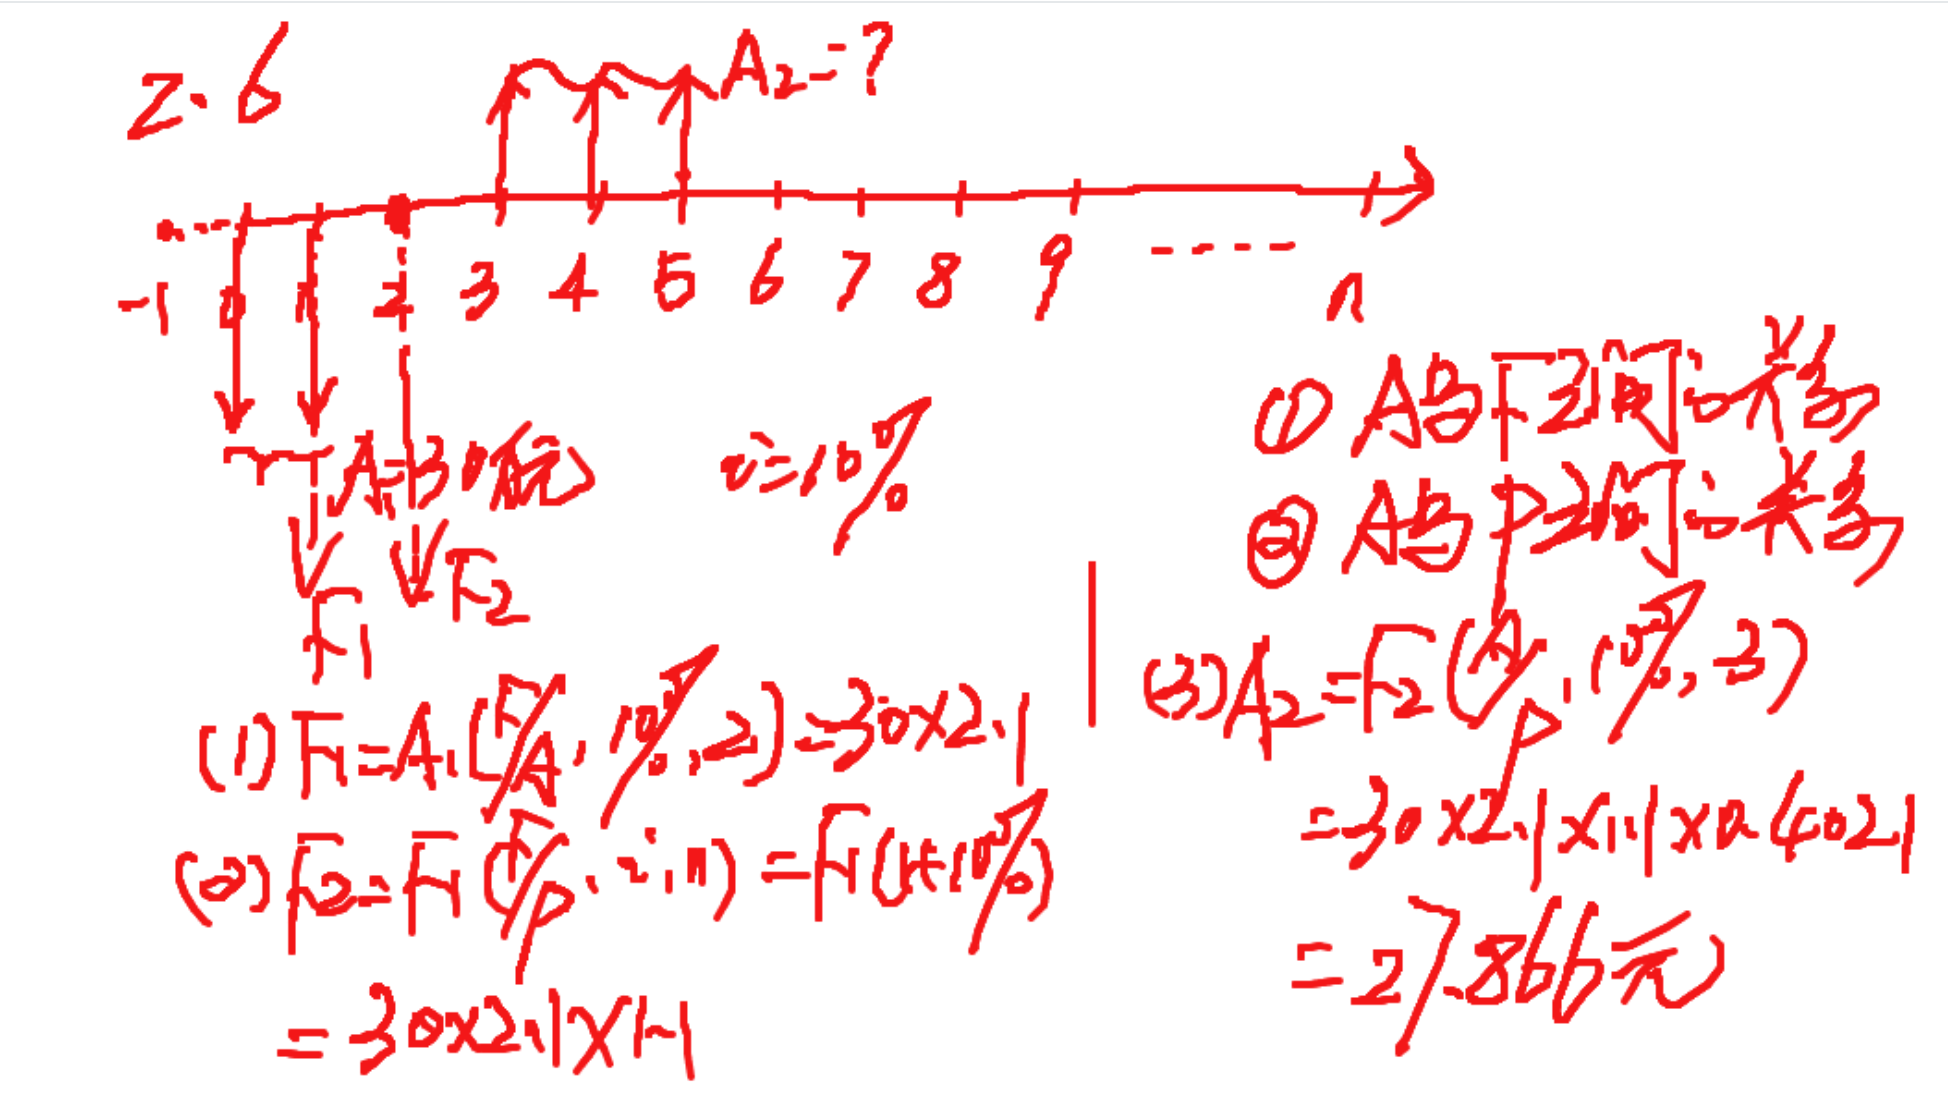 2.6
A2=?
-1 0 1 2 3 4 5 6 7 8 9 ----- n
A1=30万元 i=10%
F1 F2
① A与F之间i关系
② A与P之间i关系
(1) F1=A1(F/A,10%,2)=30×2.1
(2) F2=F1(F/P,i,n)=F1(1+10%)
=30×2.1×1.1
(3) A2=F2(A/P,10%,3)
=30×2.1×1.1×0.4021
=27.866元